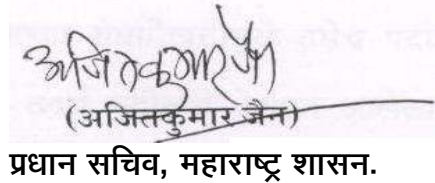 अजितकुमार जैन
(अजितकुमार जैन)
प्रधान सचिव, महाराष्ट्र शासन.